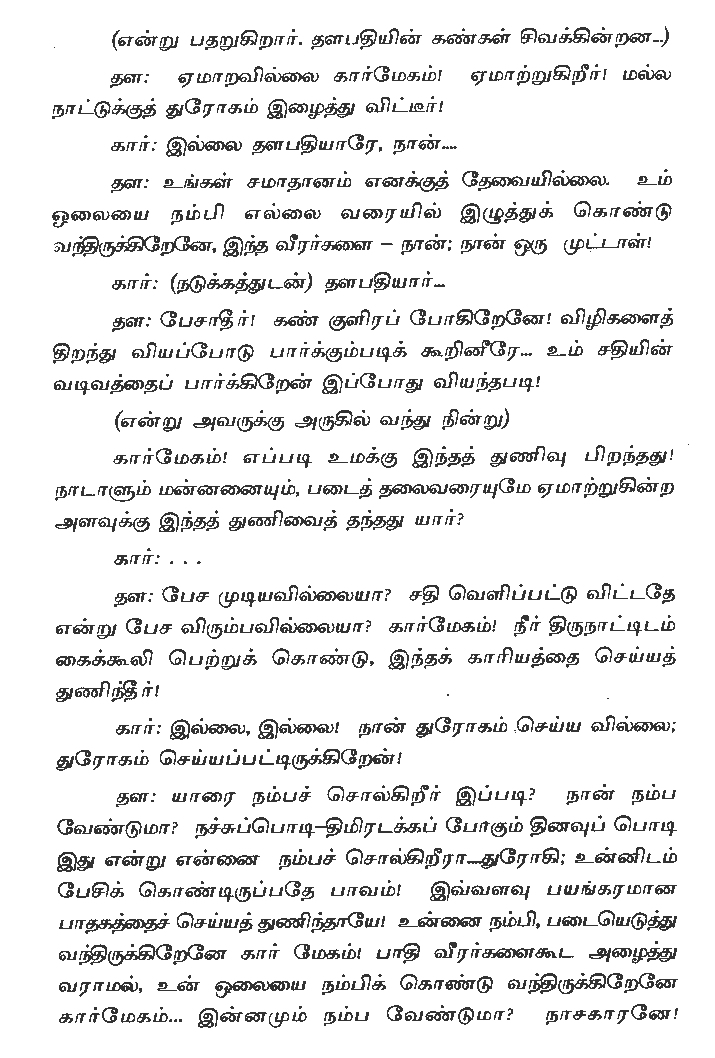 (என்று பதறுகிறார். தளபதியின் கண்கள் சிவக்கின்றன...)
தள: ஏமாறவில்லை கார்மேகம்! ஏமாற்றுகிறீர்! மல்ல
நாட்டுக்குத் துரோகம் இழைத்து விட்டீர்!
கார்: இல்லை தளபதியாரே, நான்....
தள: உங்கள் சமாதானம் எனக்குத் தேவையில்லை. உம்
ஓலையை நம்பி எல்லை வரையில் இழுத்துக் கொண்டு
வந்திருக்கிறேனே, இந்த வீரர்களை – நான்; நான் ஒரு முட்டாள்!
கார்: (நடுக்கத்துடன்) தளபதியார்...
தள: பேசாதீர்! கண் குளிரப் போகிறேனே! விழிகளைத்
திறந்து வியப்போடு பார்க்கும்படிக் கூறினீரே... உம் சதியின்
வடிவத்தைப் பார்க்கிறேன் இப்போது வியந்தபடி!
(என்று அவருக்கு அருகில் வந்து நின்று)
கார்மேகம்! எப்படி உமக்கு இந்தத் துணிவு பிறந்தது!
நாடாளும் மன்னனையும், படைத் தலைவரையுமே ஏமாற்றுகின்ற
அளவுக்கு இந்தத் துணிவைத் தந்தது யார்?
கார்: . . .
தள: பேச முடியவில்லையா? சதி வெளிப்பட்டு விட்டதே
என்று பேச விரும்பவில்லையா? கார்மேகம்! நீர் திருநாட்டிடம்
கைக்கூலி பெற்றுக் கொண்டு, இந்தக் காரியத்தை செய்யத்
துணிந்தீர்!
கார்: இல்லை, இல்லை! நான் துரோகம் செய்ய வில்லை;
துரோகம் செய்யப்பட்டிருக்கிறேன்!
தள: யாரை நம்பச் சொல்கிறீர் இப்படி? நான் நம்ப
வேண்டுமா? நச்சுப்பொடி–திமிரடக்கப் போகும் தினவுப் பொடி
இது என்று என்னை நம்பச் சொல்கிறீரா...துரோகி; உன்னிடம்
பேசிக் கொண்டிருப்பதே பாவம்! இவ்வளவு பயங்கரமான
பாதகத்தைச் செய்யத் துணிந்தாயே! உன்னை நம்பி, படையெடுத்து
வந்திருக்கிறேனே கார் மேகம்! பாதி வீரர்களைகூட அழைத்து
வராமல், உன் ஓலையை நம்பிக் கொண்டு வந்திருக்கிறேனே
கார்மேகம்... இன்னமும் நம்ப வேண்டுமா? நாசகாரனே!